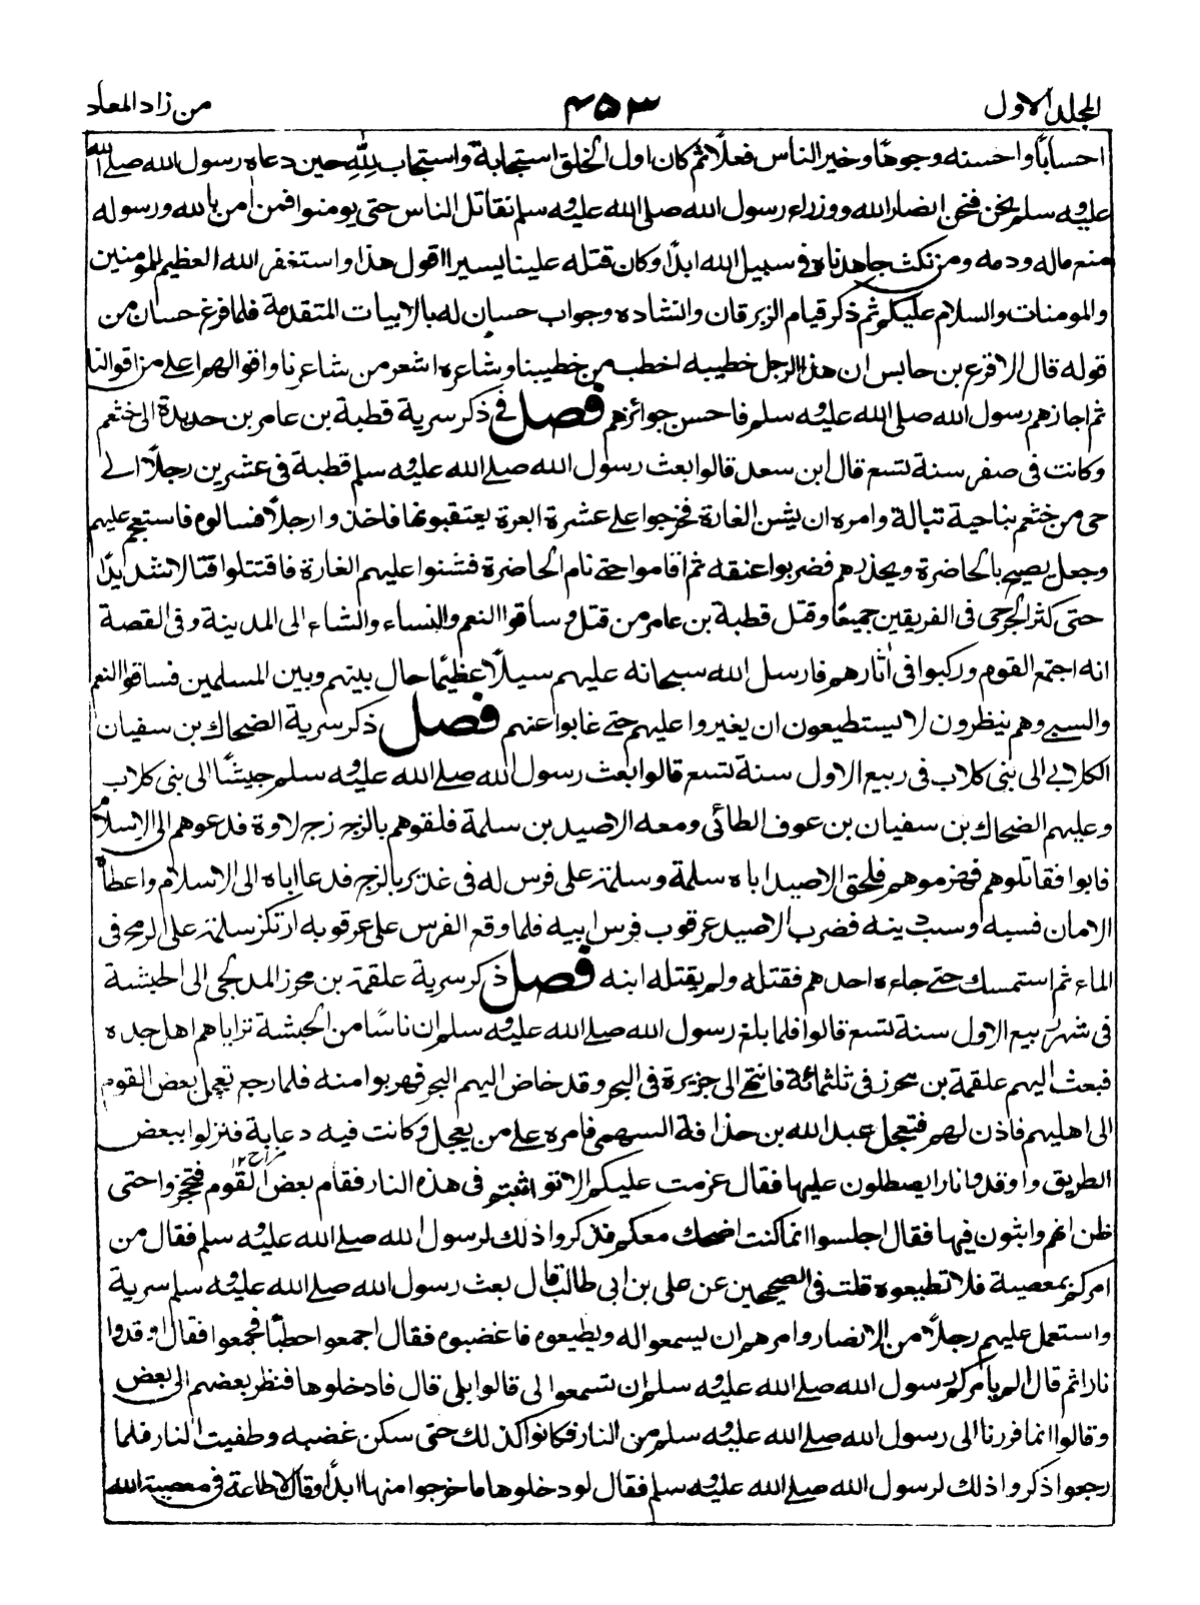 المجلد الاول
۴۵۳
من زاد المعاد
احسابًا واحسنه وجوهًا وخير الناس فعلًا ثم كان اول الخلق استجابة واستجاب لله حين دعاه رسول الله صلے الله
عليه وسلم نحن فنحن انصار الله ووزراء رسول الله صلے الله عليه وسلم نقاتل الناس حتى يومنوا فمن اٰمن بالله ورسوله
منع ماله ودمه ومن نكث جاهدناه فى سبيل الله ابدًا وكان قتله علينا يسيرا اقول هذا واستغفر الله العظيم للمومنين
والمومنات والسلام عليكم ثم ذكر قيام الزبرقان وانشاده وجواب حسان له بالابيات المتقدمة فلما فرغ حسان من
قوله قال الاقرع بن حابس ان هذا الرجل خطيبه اخطب من خطيبنا وشاعره اشعر من شاعرنا واقوالهم اعلى من اقوالنا
ثم اجازهم رسول الله صلى الله عليه وسلم فاحسن جوائزهم فصل فى ذكر سرية قطبة بن عامر بن حديدة الى خثعم
وكانت فى صفر سنة تسع قال ابن سعد قالوا بعث رسول الله صلے الله عليه وسلم قطبة فى عشرين رجلًا الے
حى من خثعم بناحية تبالة وامره ان يشن الغارة فخرجوا على عشرة ابعرة يعتقبونها فاخذوا رجلًا فسالوه فاستعجم عليهم
وجعل يصيح بالحاضرة ويحذرهم فضربوا عنقه ثم اقاموا حتے نام الحاضرة فشنوا عليهم الغارة فاقتتلوا قتالا شديدًا
حتى كثر الجرحى فى الفريقين جميعًا وقتل قطبة بن عامر من قتل وساقوا النعم والنساء والشاء الى المدينة وفى القصة
انه اجتمع القوم وركبوا فى اٰثارهم فارسل الله سبحانه عليهم سيلًا عظيمًا حال بينهم وبين المسلمين فساقوا النعم
والسبے وهم ينظرون لا يستطيعون ان يغيروا عليهم حتے غابوا عنهم فصل ذكر سرية الضحاك بن سفيان
الكلابے الى بنى كلاب فى ربيع الاول سنة تسع قالوا بعث رسول الله صلے الله عليه وسلم جيشًا الى بنى كلاب
وعليهم الضحاك بن سفيان بن عوف الطائى ومعه الاصيد بن سلمة فلقوهم بالزج زج لاوة فدعوهم الى الاسلام
فابوا فقاتلوهم فهزموهم فلحق الاصيد اباه سلمة وسلمة على فرس له فى غدير بالزج فدعا اباه الى الاسلام واعطاه
الامان فسبه وسب دينه فضرب الاصيد عرقوب فرس ابيه فلما وقع الفرس على عرقوبه ارتكز سلمة على الرمح فى
الماء ثم استمسك حتے جاءه احدهم فقتله ولم يقتله ابنه فصل ذكر سرية علقمة بن محرز المدلجى الى الحبشة
فى شهر ربيع الاول سنة تسع قالوا فلما بلغ رسول الله صلى الله عليه وسلم ان ناسًا من الحبشة تراياهم اهل جده
فبعث اليهم علقمة بن محرز فى ثلثمائة فانتهى الى جزيرة فى البحر وقد خاض اليهم البحر فهربوا منه فلما رجع تعجل بعض القوم
الى اهليهم فاذن لهم فتعجل عبد الله بن حذافة السهمى فامره على من يعجل وكانت فيه دعابة فنزلوا ببعض
مزاح ۱۲
الطريق واوقدوا نارا يصطلون عليها فقال عزمت عليكم الا تواثبتم فى هذه النار فقام بعض القوم فتحجزوا حتى
ظن انهم واثبون فيها فقال اجلسوا انما كنت اضحك معكم فذكروا ذلك لرسول الله صلے الله عليه وسلم فقال من
امركم بمعصية فلا تطيعوه قلت فى الصحيحين عن على بن ابى طالب قال بعث رسول الله صلے الله عليه وسلم سرية
واستعمل عليهم رجلًا من الانصار وامرهم ان يسمعوا له ويطيعوه فاغضبوه فقال اجمعوا حطبًا فجمعوا فقال اوقدوا
نارا ثم قال الم يامركم رسول الله صلے الله عليه وسلم ان تسمعوا لى قالوا بلى قال فادخلوها فنظر بعضهم الى بعض
وقالوا انما فررنا الى رسول الله صلے الله عليه وسلم من النار فكانوا كذلك حتى سكن غضبه وطفيت النار فلما
رجعوا ذكروا ذلك لرسول الله صلے الله عليه وسلم فقال لو دخلوها ما خرجوا منها ابدًا وقال لا طاعة فى معصية الله